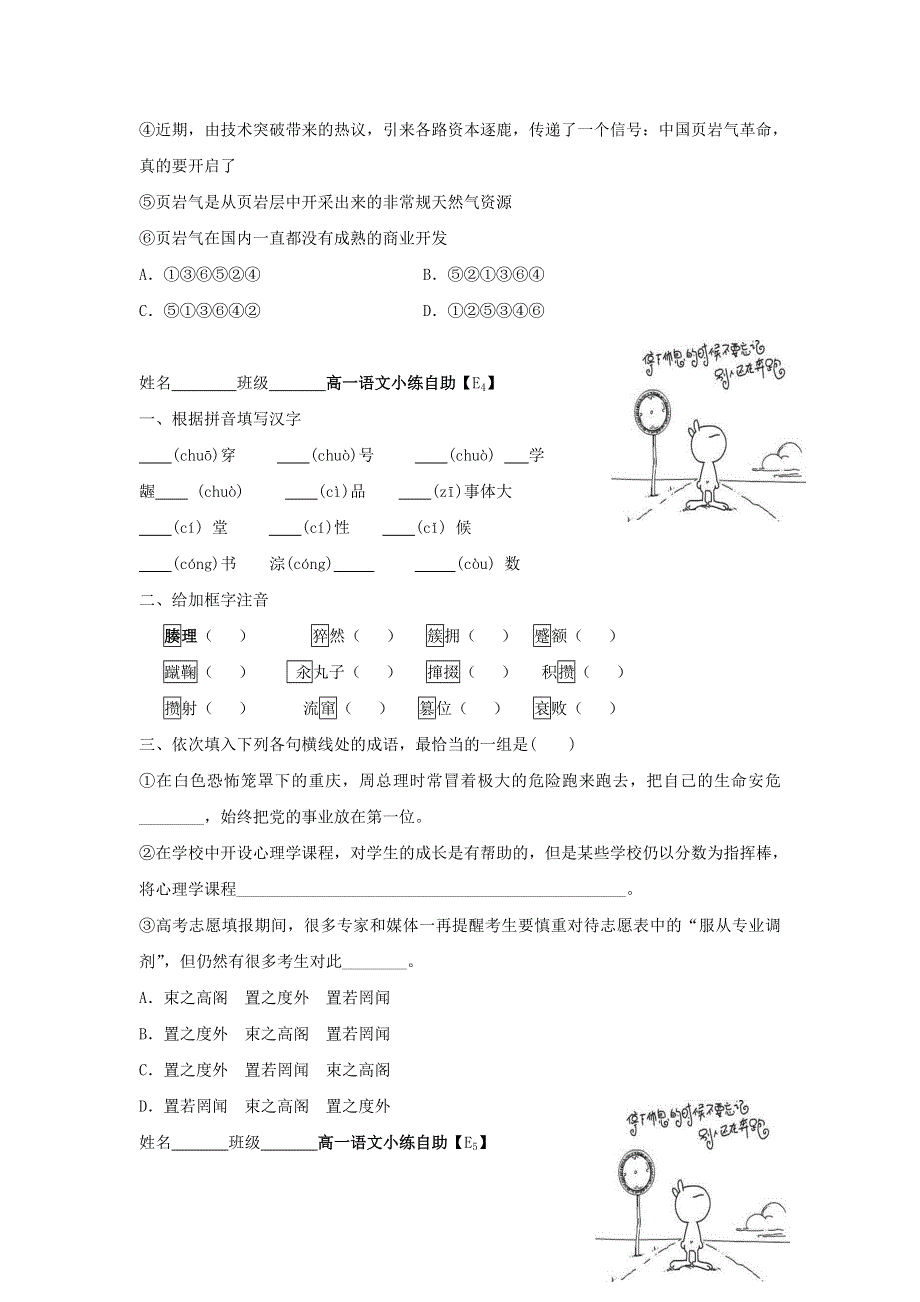 ④近期，由技术突破带来的热议，引来各路资本逐鹿，传递了一个信号：中国页岩气革命，
真的要开启了
⑤页岩气是从页岩层中开采出来的非常规天然气资源
⑥页岩气在国内一直都没有成熟的商业开发
A．①③⑥⑤②④ B．⑤②①③⑥④
C．⑤①③⑥④② D．①②⑤③④⑥
停下休息的时候不要忘记
别人还在奔跑
姓名________班级_______高一语文小练自助【E4】
一、根据拼音填写汉字
____(chuō)穿 ____(chuò)号 ____(chuò) ___学
龊____ (chuò) ____(cì)品 ____(zī)事体大
____(cí) 堂 ____(cí)性 ____(cī) 候
____(cóng)书 淙(cóng)_____ _____(còu) 数
二、给加框字注音
腠理（ ） 猝然（ ） 簇拥（ ） 蹙额（ ）
蹴鞠（ ） 汆丸子（ ） 撺掇（ ） 积攒（ ）
攒射（ ） 流窜（ ） 篡位（ ） 衰败（ ）
三、依次填入下列各句横线处的成语，最恰当的一组是( )
①在白色恐怖笼罩下的重庆，周总理时常冒着极大的危险跑来跑去，把自己的生命安危
________，始终把党的事业放在第一位。
②在学校中开设心理学课程，对学生的成长是有帮助的，但是某些学校仍以分数为指挥棒，
将心理学课程________________________________________________。
③高考志愿填报期间，很多专家和媒体一再提醒考生要慎重对待志愿表中的“服从专业调
剂”，但仍然有很多考生对此________。
A．束之高阁 置之度外 置若罔闻
B．置之度外 束之高阁 置若罔闻
C．置之度外 置若罔闻 束之高阁
D．置若罔闻 束之高阁 置之度外
停下休息的时候不要忘记
别人还在奔跑
姓名_______班级_______高一语文小练自助【E5】